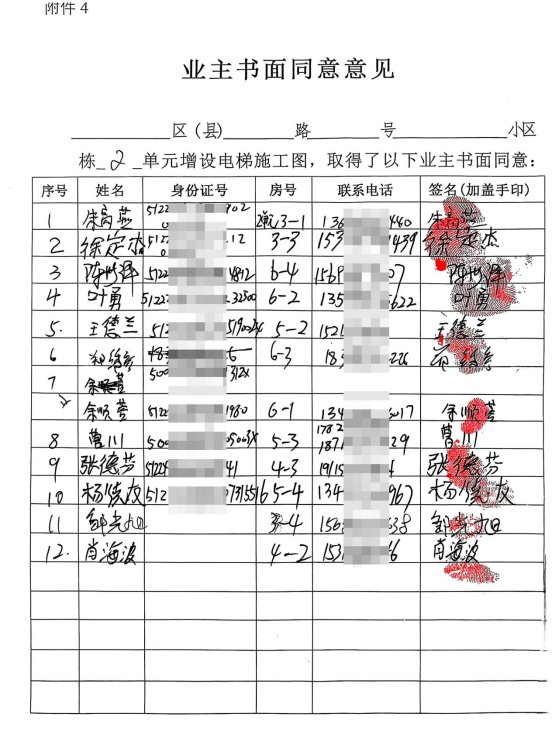 附件4
业主书面同意意见
区(县) 路 号 小区
栋 2 单元增设电梯施工图，取得了以下业主书面同意：
序号 姓名 身份证号 房号 联系电话 签名(加盖手印)
1 朱高燕 5122 902 3-1 136 440 朱高燕
2 徐定杰 512 12 3-3 153 1439 徐定杰
3 5122 4892 6-4 07
4 叶勇 5122 6-2 135 622 叶勇
5. 王德兰 512 5-2 1521 王德兰
6 6-3 183 226
7 500 312X
余顺蓉 5122 1980 6-1 134 3017 余顺蓉
8 曹川 500 5-3 187 29 曹川
9 张德芬 41 4-3 张德芬
10 杨俊友 512 5-4 134 967 杨俊友
11 邹光旭 3-4 156 338 邹光旭
12. 肖海波 4-2 153 6 肖海波